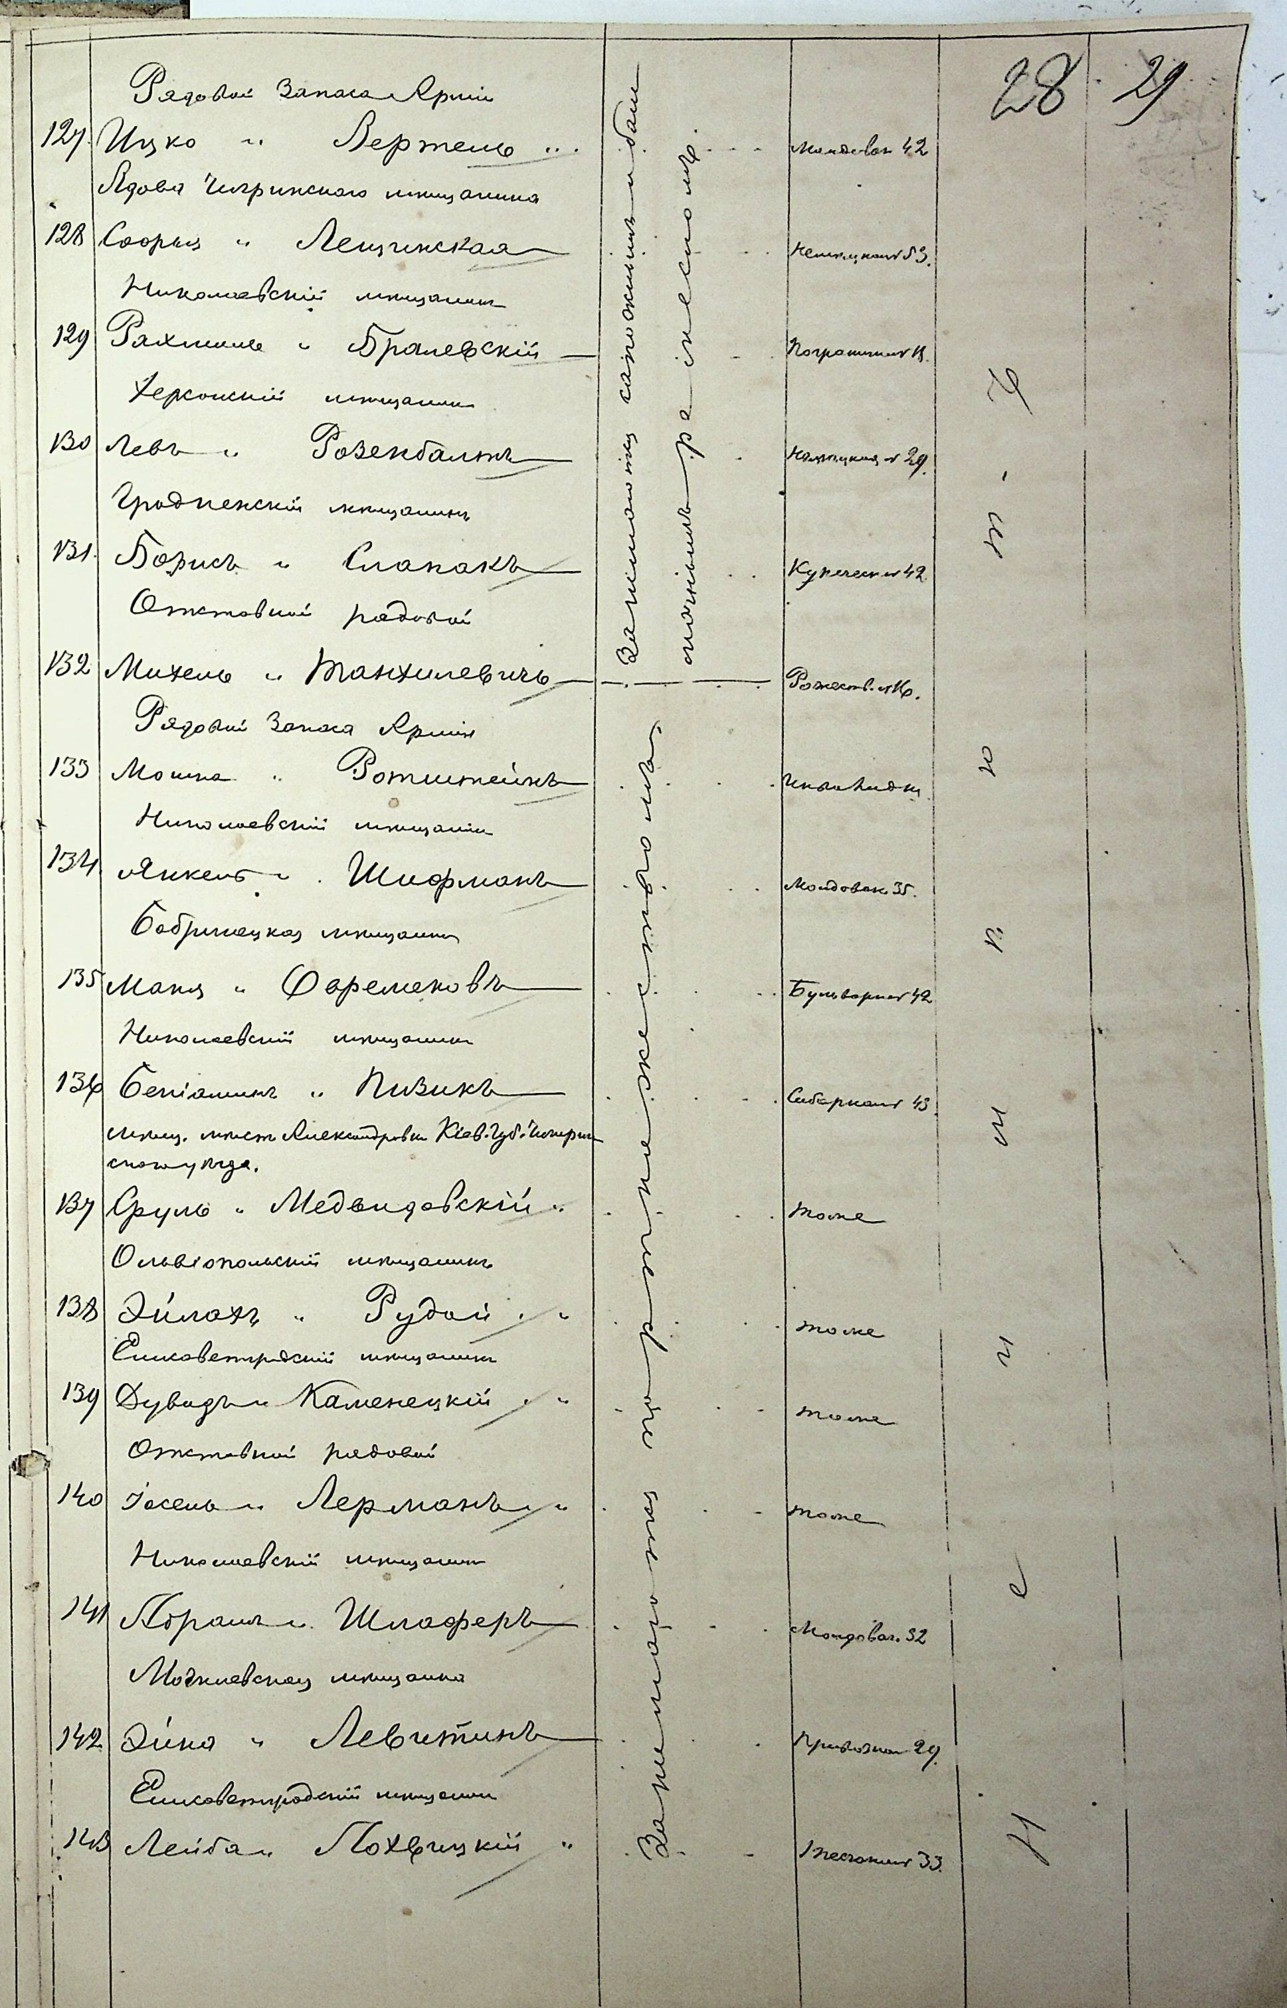 28 29
Рядовой Запаса Арміи
127. Ицко " Вертель
Молдован 42
Вдова Чигринскаго мѣщанина
128 Софья " Лещинская
53.
Николаевскій мѣщанин
129 Рахмиль " Бралевскій
Пограничная
Херсонскій мѣщанин
130 Левъ " Розенбалтъ
29.
Гродненскій мѣщанинъ
131. Борисъ " Слапакъ
Купеческ 42
Отставной рядовой
132 Михель " Танхилевичъ
Рожеств.
Рядовой Запаса Арміи
133 Мошка " Ротштейнъ
Николаевскій мѣщанин
134 Янкель " Шифманъ
Молдован 35.
Бобринецкая мѣщанин
135 Маня " Ефремековъ
Бульварная 42
Николаевскій мѣщанин
136 Беніаминъ " Пизикъ
Сиборская 43
мѣщ. мѣст. Александровки Кіев. Губ. Чигрин
скаго уѣзда.
137 Сруль " Медвидовскій "
тоже
Ольвіопольскій мѣщанинъ
138 Эйлохъ " Рудой "
тоже
Елисаветградскій мѣщанин
139 Дувидъ " Каменецкій "
тоже
Отставной рядовой
140 Іосель " Лерманъ "
тоже
Николаевскій мѣщанин
141 Абрамъ " Шлаферъ
Молдован. 32
Могилевская мѣщанка
142 Эйна " Левитинъ
29.
Елисаветградскій мѣщанин
143 Лейба " Похвицкій "
Песчаная 33.
Занимаются сапожным и баш
мачнымъ ремесломъ.
Занимаются портняжествомъ
Н е и м ѣ ю т - ъ